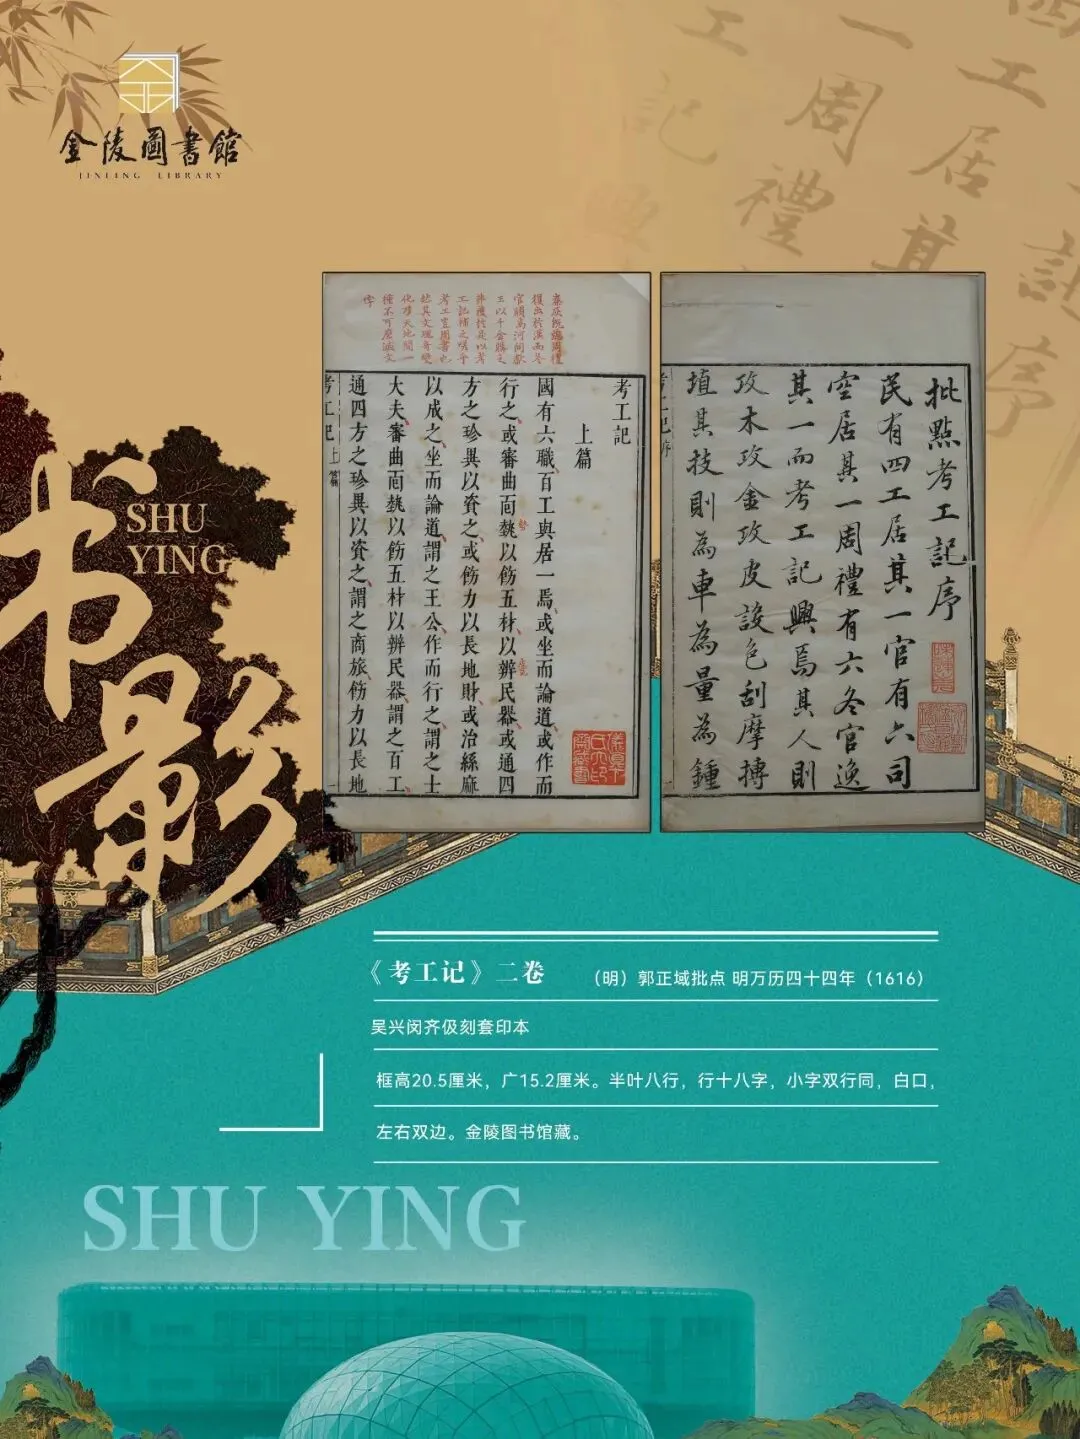 金陵圖書館
JINLING LIBRARY
书影
SHU
YING
批點考工記序
民有四工居其一官有六司
空居其一周禮有六冬官逸
其一而考工記興焉其人則
攻木攻金攻皮設色刮摩摶
埴其技則為車為量為鍾
秦灰既熄周禮
復出於漢而冬
官願高河間獻
王以千金購之
弗獲於是以考
工記補之嗟乎
考工豈周書也
然其文瑰奇變
化、天地間一
種不可磨滅文
字
考工記
上篇
國有六職百工與居一焉或坐而論道或作而
行之或審曲面埶以飭五材以辨民器或通四
方之珍異以資之或飭力以長地財或治絲麻
以成之坐而論道謂之王公作而行之謂之士
大夫審曲面埶以飭五材以辨民器謂之百工
通四方之珍異以資之謂之商旅飭力以長地
考工記上篇
《考工记》二卷 （明）郭正域批点 明万历四十四年（1616）
吴兴闵齐伋刻套印本
框高20.5厘米，广15.2厘米。半叶八行，行十八字，小字双行同，白口，
左右双边。金陵图书馆藏。
SHU YING